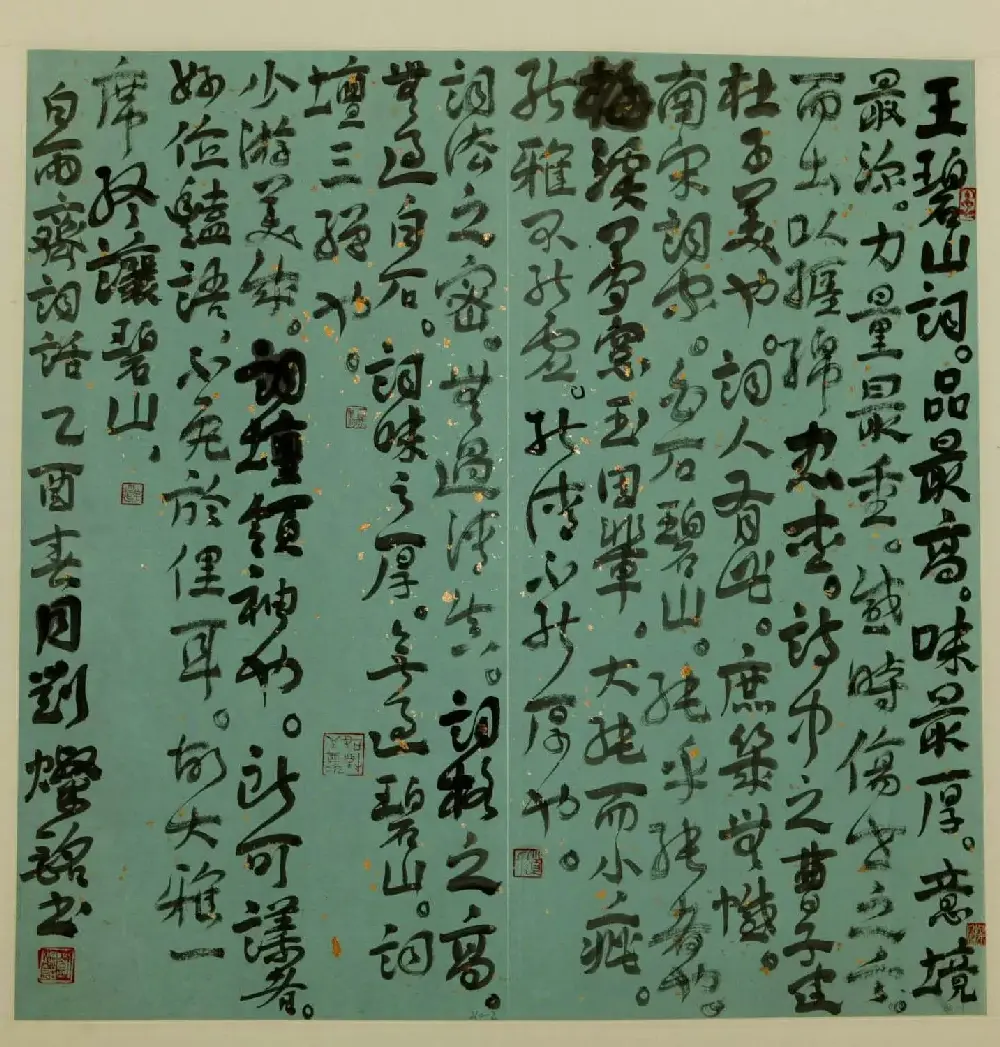 王碧山詞。品最高。味最厚。意境
最深。力量最重。感時傷世之言。
而出以纏綿忠愛。詩中之曹子建
杜子美也。詞人有此。庶幾無憾。
南宋詞家。白石碧山。純乎純者也。
梅溪夢窗玉田輩，大純而小疵。
能雅不能虛。能清不能厚也。
詞法之密。無過清真。詞格之高。
無過白石。詞味之厚。無過碧山。詞
壇三絕也。
少游美成。詞壇領袖也。所可議者。
好作豔語、不免於俚耳。故大雅一
席終讓碧山，
白雨齋詞話 乙酉春月劉燦銘書